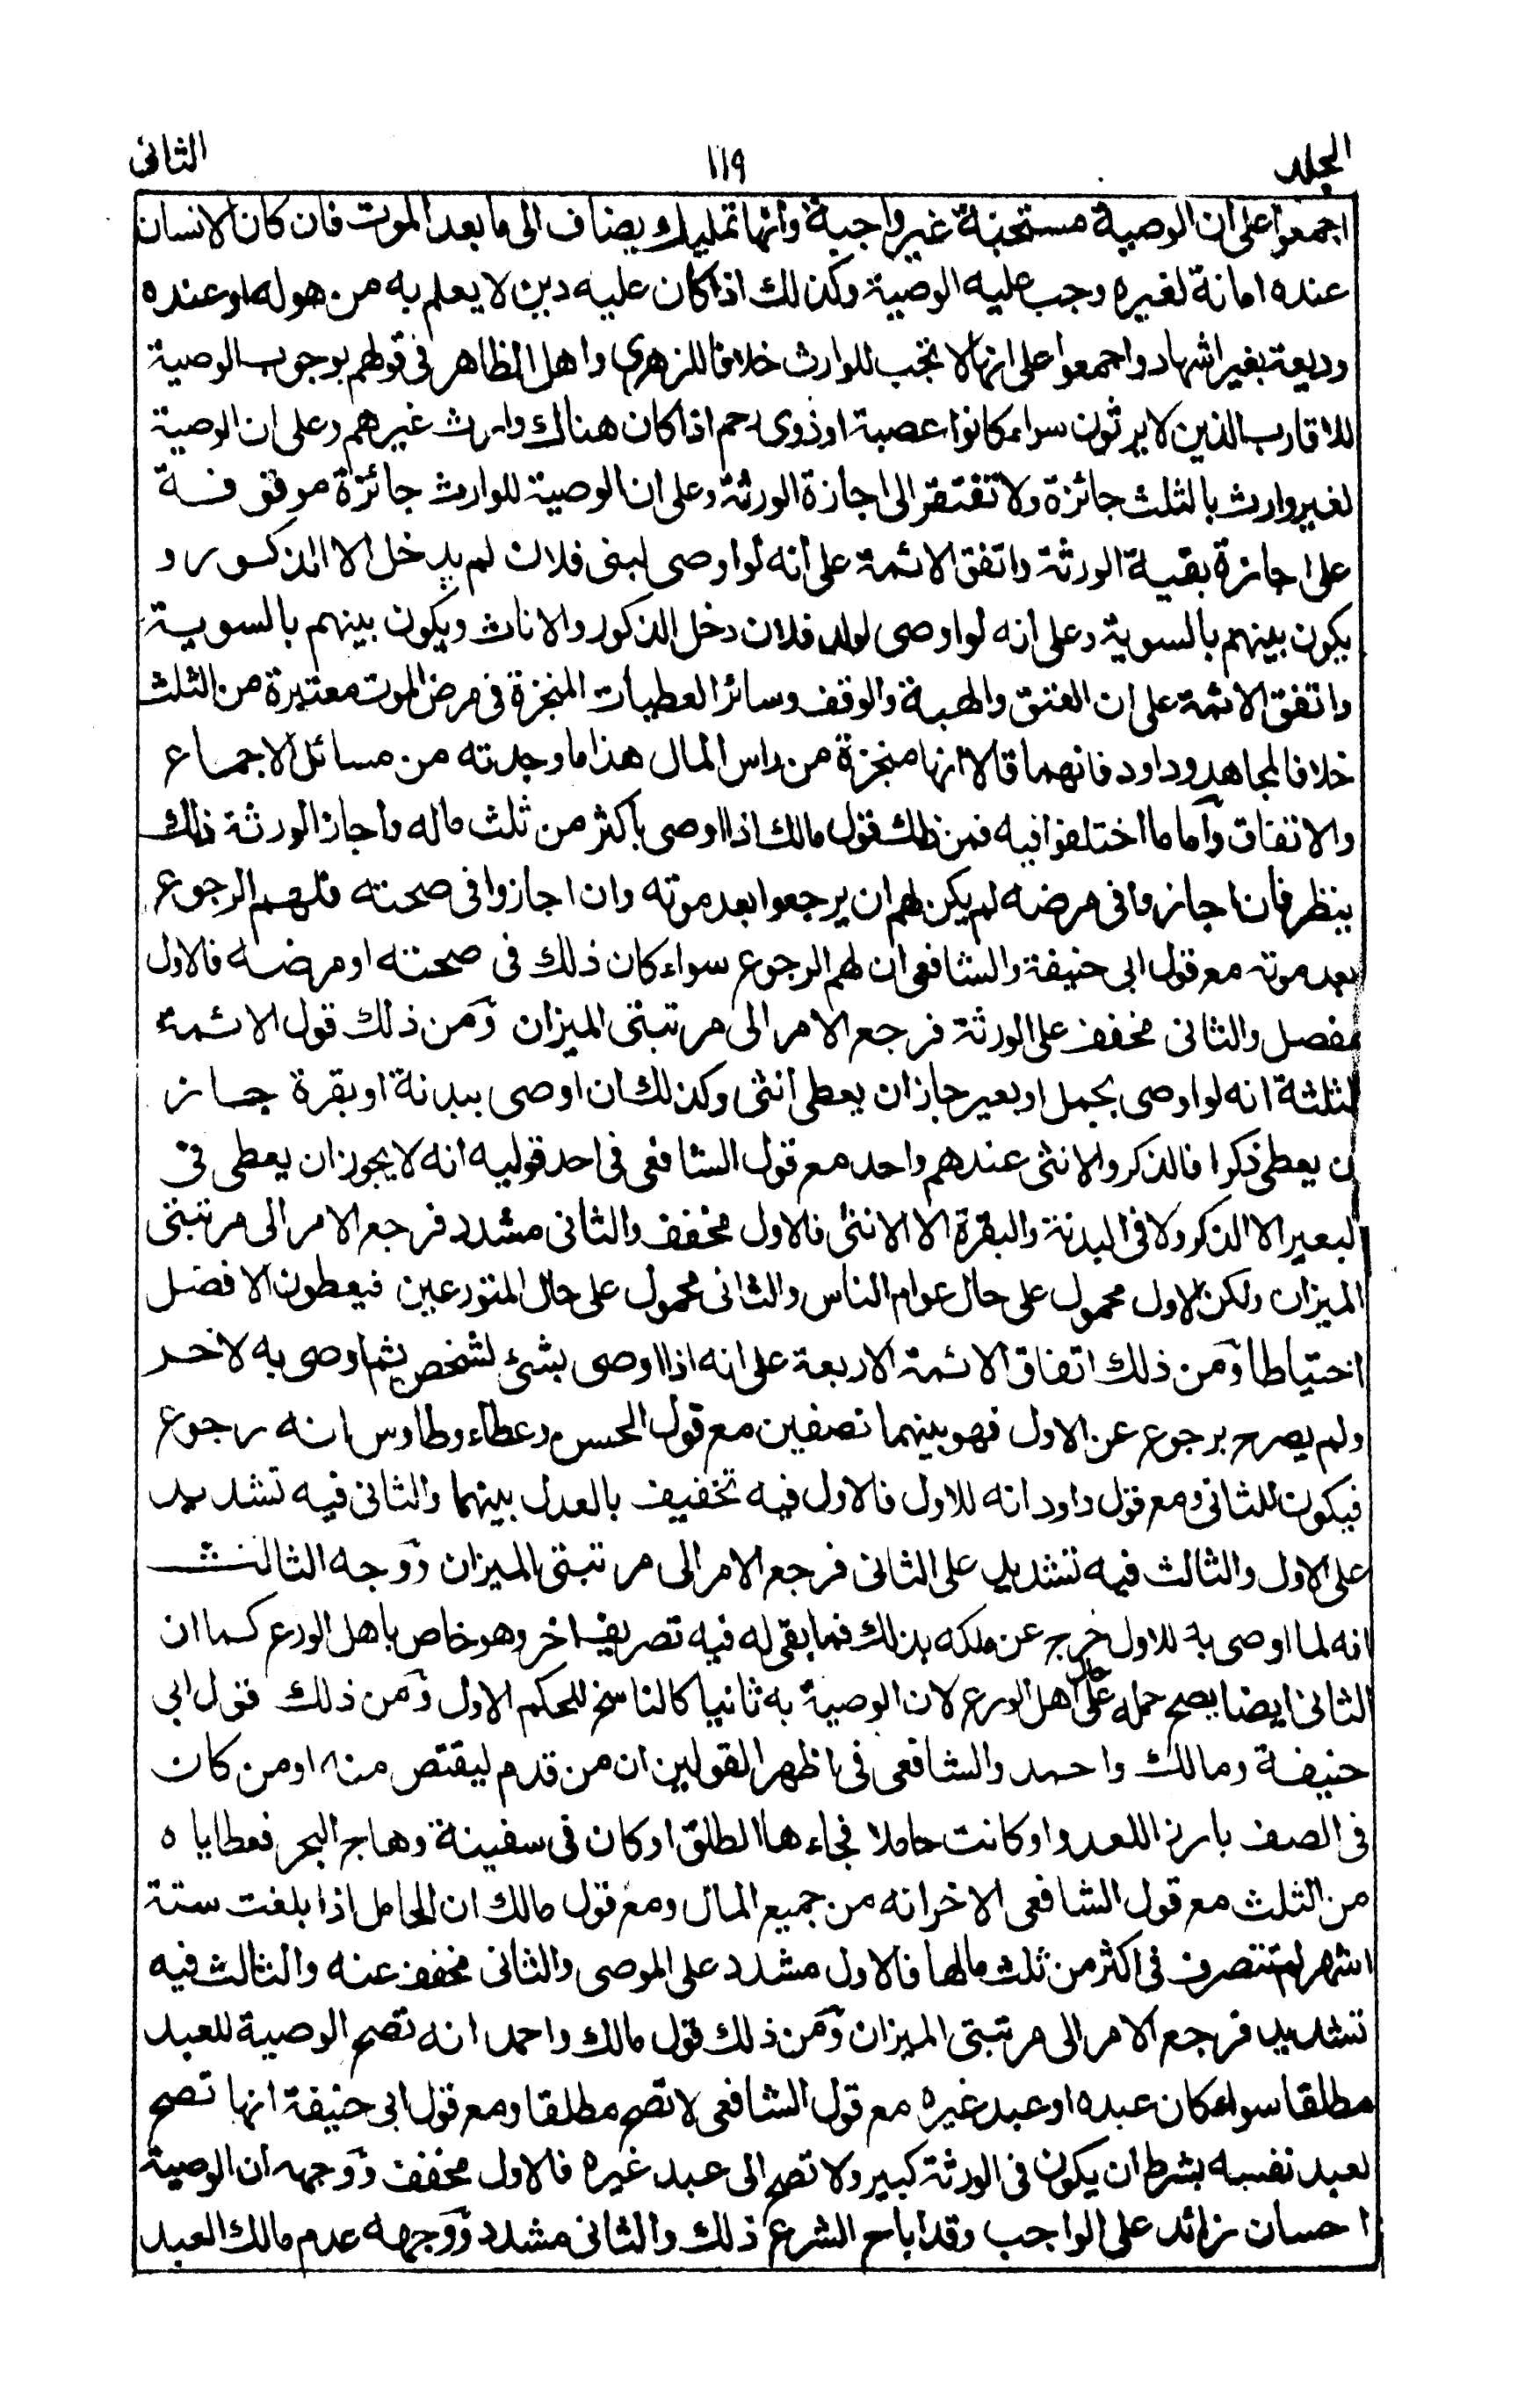 الجلد ١١٩ الثانى
اجمعوا على ان الوصية مستحبة غير واجبة وانها تمليك يضاف الى ما بعد الموت فان كان الانسان
عنده امانة لغيره وجب عليه الوصية وكذلك اذا كان عليه دين لا يعلم به من هو له او عنده
وديعة بغير اشهاد واجمعوا على انها لا تجب للوارث خلافا للزهرى واهل الظاهر فى قولهم بوجوب الوصية
للاقارب الذين لا يرثون سواء كانوا عصبة او ذوى رحم اذا كان هناك وارث غيرهم وعلى ان الوصية
لغير وارث بالثلث جائزة ولا تفتقر الى اجازة الورثة وعلى ان الوصية للوارث جائزة موقوفة
على اجازة بقية الورثة واتفق الائمة على أنه لو اوصى لبنى فلان لم يدخل الا الذكور و
يكون بينهم بالسوية وعلى انه لو اوصى لولد فلان دخل الذكور والاناث ويكون بينهم بالسوية
واتفق الائمة على ان العتق والهبة والوقف وسائر العطيات المنجزة فى مرض الموت معتبرة من الثلث
خلافا لمجاهد وداود فانهما قالا انها منجزة من راس المال هذا ما وجدته من مسائل الاجماع
والاتفاق وآما ما اختلفوا فيه فمن ذلك قول مالك اذا اوصى باكثر من ثلث ماله واجاز الورثة ذلك
ينظر فان اجازوا فى مرضه لم يكن لهم ان يرجعوا بعد موته وان اجازوا فى صحته فلهم الرجوع
بعد موته مع قول ابى حنيفة والشافعى ان لهم الرجوع سواء كان ذلك فى صحته او مرضه فالاول
مفصل والثانى مخفف على الورثة فرجع الامر الى مرتبتى الميزان وَمن ذلك قول الائمة
لثلثة انه لو اوصى بجمل او بعير جاز ان يعطى أنثى وكذلك ان اوصى ببدنة او بقرة جاز
ن يعطى ذكرا فالذكر والانثى عندهم واحد مع قول الشافعى فى احد قوليه انه لا يجوز ان يعطى فى
لبعير الا الذكر ولا فى البدنة والبقرة الا الانثى فالاول مخفف والثانى مشدد فرجع الامر الى مرتبتى
الميزان ولكن الاول محمول على حال عوام الناس والثانى محمول على حال المتورعين فيعطون الافضل
احتياطا وَمن ذلك اتفاق الائمة الاربعة على انه اذا اوصى بشئ لشخص ثم اوصى به لاخر
ولم يصرح برجوع عن الاول فهو بينهما نصفين مع قول الحسن وعطاء وطاوس انه رجوع
فيكون للثانى ومع قول داود انه للاول فالاول فيه تخفيف بالعدل بينهما والثانى فيه تشديد
على الاول والثالث فيه تشديد على الثانى فرجع الامر الى مرتبتى الميزان وَوجه الثالث
انه لما اوصى به للاول خرج عن ملكه بذلك فما بقى له فيه تصريف اخر وهو خاص باهل الورع كما ان
الثانى ايضا يصح حمله على حال اهل الورع لان الوصية به ثانيا كالناسخ للحكم الاول وَمن ذلك قول ابى
حنيفة ومالك واحمد والشافعى فى اظهر القولين ان من قدم ليقتص منه او من كان
فى الصف بارز اللعدو او كانت حاملا فجاءها الطلق او كان فى سفينة وهاج البحر فعطاياه
من الثلث مع قول الشافعى الاخر انه من جميع المال ومع قول مالك ان الحامل اذا بلغت ستة
اشهر لم تتصرف فى اكثر من ثلث مالها فالاول مشدد على الموصى والثانى مخفف عنه والثالث فيه
تشديد فرجع الامر الى مرتبتى الميزان وَمن ذلك قول مالك واحمد انه تصح الوصية للعبد
مطلقا سواء كان عبده او عبد غيره مع قول الشافعى لا تصح مطلقا ومع قول ابى حنيفة انها تصح
لعبد نفسه بشرط ان يكون فى الورثة كبير ولا تصح الى عبد غيره فالاول مخفف وَوجهه ان الوصية
احسان زائد على الواجب وقد اباح الشرع ذلك والثانى مشدد وَوجهه عدم مالك العبد